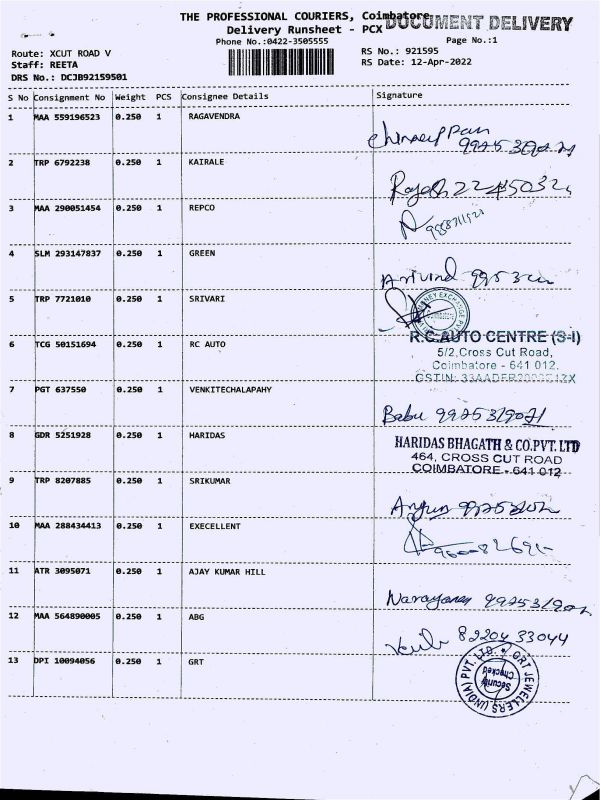 THE PROFESSIONAL COURIERS, Coimbatore
DOCUMENT DELIVERY
Delivery Runsheet - PCX
Phone No.:0422-3505555
Page No.:1
Route: XCUT ROAD V
RS No.: 921595
Staff: REETA
RS Date: 12-Apr-2022
DRS No.: DCJB92159501
S No Consignment No Weight PCS Consignee Details Signature
1 MAA 559196523 0.250 1 RAGAVENDRA
2 TRP 6792238 0.250 1 KAIRALE
3 MAA 290051454 0.250 1 REPCO
4 SLM 293147837 0.250 1 GREEN
Arvind
5 TRP 7721010 0.250 1 SRIVARI
MONEY EXCHANGE
6 TCG 50151694 0.250 1 RC AUTO
R.C.AUTO CENTRE (S-I)
5/2,Cross Cut Road,
Coimbatore - 641 012.
GSTIN:
7 PGT 637550 0.250 1 VENKITECHALAPAHY
Babu
8 GDR 5251928 0.250 1 HARIDAS
HARIDAS BHAGATH & CO.PVT.LTD
464, CROSS CUT ROAD
COIMBATORE - 641 012
9 TRP 8207885 0.250 1 SRIKUMAR
Arjun
10 MAA 288434413 0.250 1 EXECELLENT
11 ATR 3095071 0.250 1 AJAY KUMAR HILL
Narayanan
12 MAA 564890005 0.250 1 ABG
82204 33044
13 DPI 10094056 0.250 1 GRT
GRT JEWELLERS (INDIA) PVT. LTD.
Security
Checked